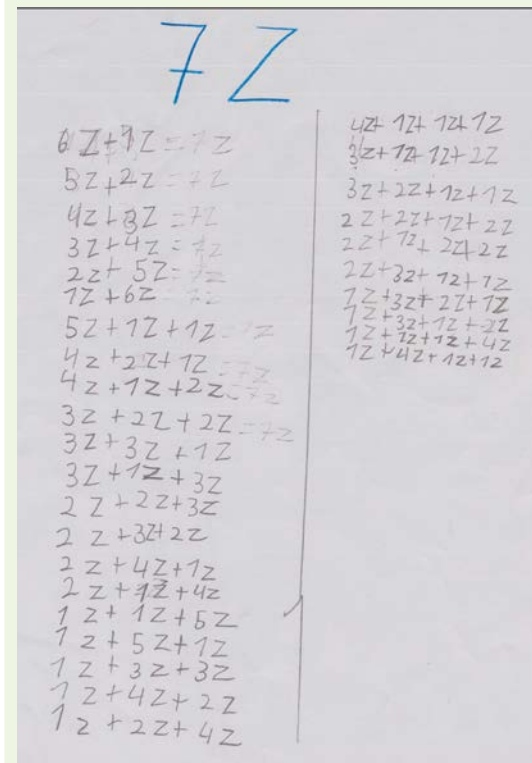 7Z
6Z+1Z=7Z
5Z+2Z=7Z
4Z+3Z=7Z
3Z+4Z=7Z
2Z+5Z=7Z
1Z+6Z=7Z
5Z+1Z+1Z=7Z
4Z+2Z+1Z=7Z
4Z+1Z+2Z=7Z
3Z+2Z+2Z=7Z
3Z+3Z+1Z
3Z+1Z+3Z
2Z+2Z+3Z
2Z+3Z+2Z
2Z+4Z+1Z
2Z+1Z+4Z
1Z+1Z+5Z
1Z+5Z+1Z
1Z+3Z+3Z
1Z+4Z+2Z
1Z+2Z+4Z
4Z+1Z+1Z+1Z
3Z+1Z+1Z+2Z
3Z+2Z+1Z+1Z
2Z+2Z+1Z+2Z
2Z+1Z+2Z+2Z
2Z+3Z+1Z+1Z
1Z+3Z+2Z+1Z
1Z+3Z+1Z+2Z
1Z+1Z+1Z+4Z
1Z+4Z+1Z+1Z